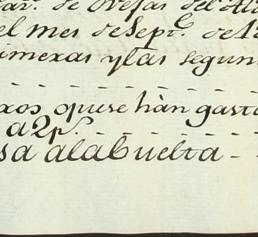 de Ovejas del
el mes de Septe. de
imexas y las segun
xos qu.e se hàn gasta
a 2 p.s
sa ala buelta